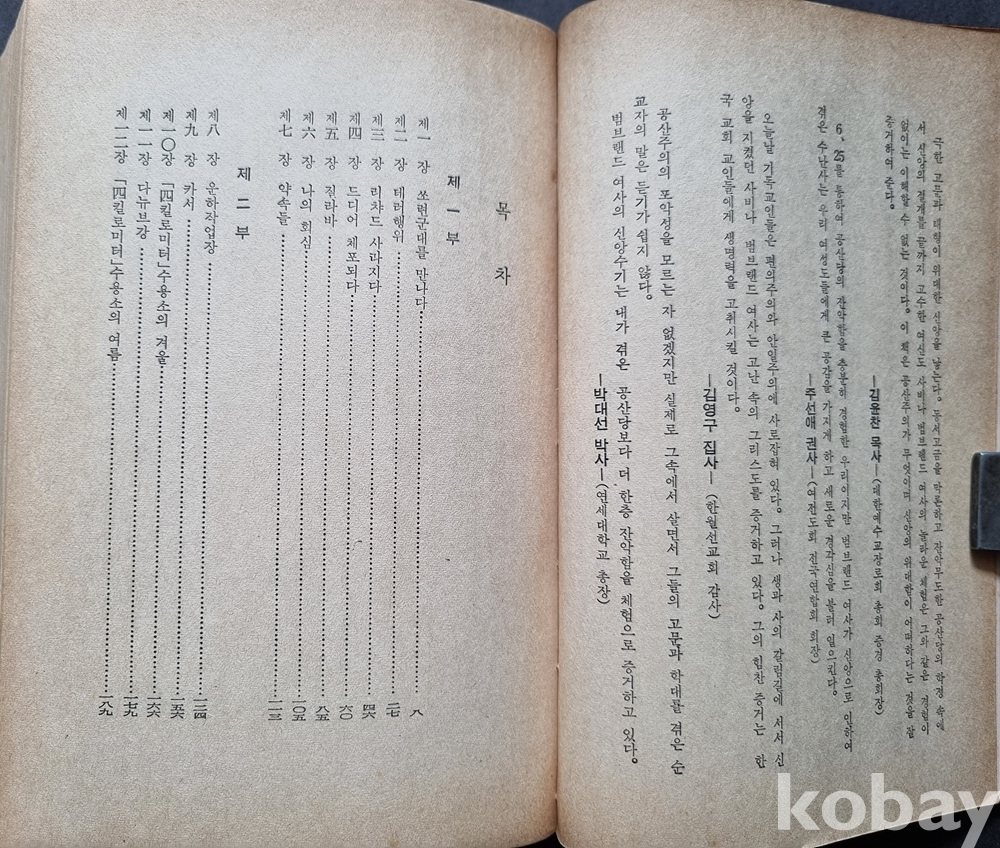 극한 고문과 태형이 위대한 신앙을 낳는다。동서고금을 막론하고 잔악무도한 공산당의 학정 속에
서 신앙의 정계를 끝까지 고수한 여신도 사비나 범브랜드 여사의 놀라운 체험은 그와 같은 경험이
없이는 이해할 수 없는 것이다。이 책은 공산주의가 무엇이며 신앙의 위대함이 어떠하다는 것을 잘
증거하여 준다。
―김윤찬 목사―(대한예수교장로회 총회 증경 총회장)
6、25를 통하여 공산당의 잔악함을 충분히 경험한 우리이지만 범브랜드 여사가 신앙으로 인하여
겪은 수난사는 우리 여성도들에게 큰 공감을 가지게 하고 새로운 경각심을 불러 일으킨다。
―주선애 권사―(여전도회 전국연합회 회장)
오늘날 기독교인들은 편의주의와 안일주의에 사로잡혀 있다。그러나 생과 사의 갈림길에 서서 신
앙을 지켰던 사비나 범브랜드 여사는 고난 속의 그리스도를 증거하고 있다。그의 힘찬 증거는 한
국 교회 교인들에게 생명력을 고취시킬 것이다。
―김영구 집사―(한월선교회 감사)
공산주의의 포악성을 모르는 자 없겠지만 실제로 그속에서 살면서 그들의 고문과 학대를 겪은 순
교자의 말은 듣기가 쉽지 않다。
범브랜드 여사의 신앙수기는 내가 겪은 공산당보다 더 한층 잔악함을 체험으로 증거하고 있다。
―박대선 박사―(연세대학교 총장)
목 차
제 一 부
제一 장 쏘련군대를 만나다 八
제二 장 테러행위 二七
제三 장 리챠드 사라지다 四六
제四 장 드디어 체포되다 六〇
제五 장 질라바 八五
제六 장 나의 회심 一〇五
제七 장 약속들 一一三
제 二 부
제八 장 운하작업장 一三四
제九 장 카서 一五六
제一〇장 「四킬로미터」수용소의 겨울 一六六
제一一장 다뉴브강 一七九
제一二장 「四킬로미터」수용소의 여름 一八九
kobay